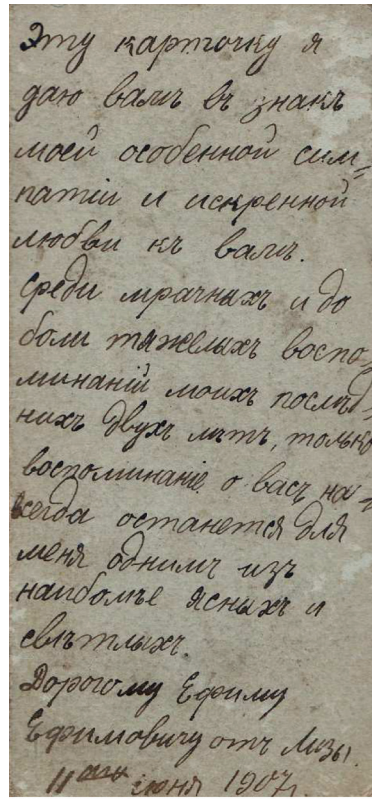 Эту карточку я
даю вамъ въ знакъ
моей особенной сим=
патiи и искренной
любви къ вамъ.
Среди мрачныхъ и до
боли тяжелыхъ воспо=
минанiй моихъ послѣд=
нихъ двухъ лѣтъ, только
воспоминанiе о васъ на=
всегда останется для
меня однимъ изъ
наиболѣе ясныхъ и
свѣтлыхъ.
Дорогому Ефиму
Ефимовичу отъ Лизы.
11ого iюня 1907 г.